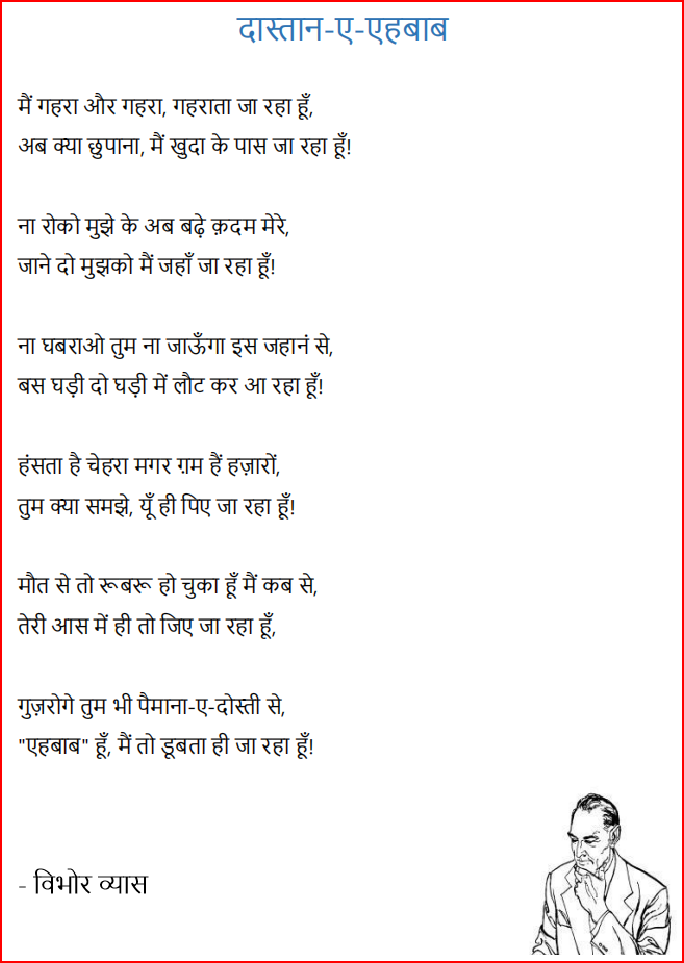 दास्तान-ए-एहबाब
मैं गहरा और गहरा, गहराता जा रहा हूँ,
अब क्या छुपाना, मैं खुदा के पास जा रहा हूँ!
ना रोको मुझे के अब बढ़े क़दम मेरे,
जाने दो मुझको मैं जहाँ जा रहा हूँ!
ना घबराओ तुम ना जाऊँगा इस जहानं से,
बस घड़ी दो घड़ी में लौट कर आ रहा हूँ!
हंसता है चेहरा मगर ग़म हैं हज़ारों,
तुम क्या समझे, यूँ ही पिए जा रहा हूँ!
मौत से तो रूबरू हो चुका हूँ मैं कब से,
तेरी आस में ही तो जिए जा रहा हूँ,
गुज़रोगे तुम भी पैमाना-ए-दोस्ती से,
"एहबाब" हूँ, मैं तो डूबता ही जा रहा हूँ!
- विभोर व्यास